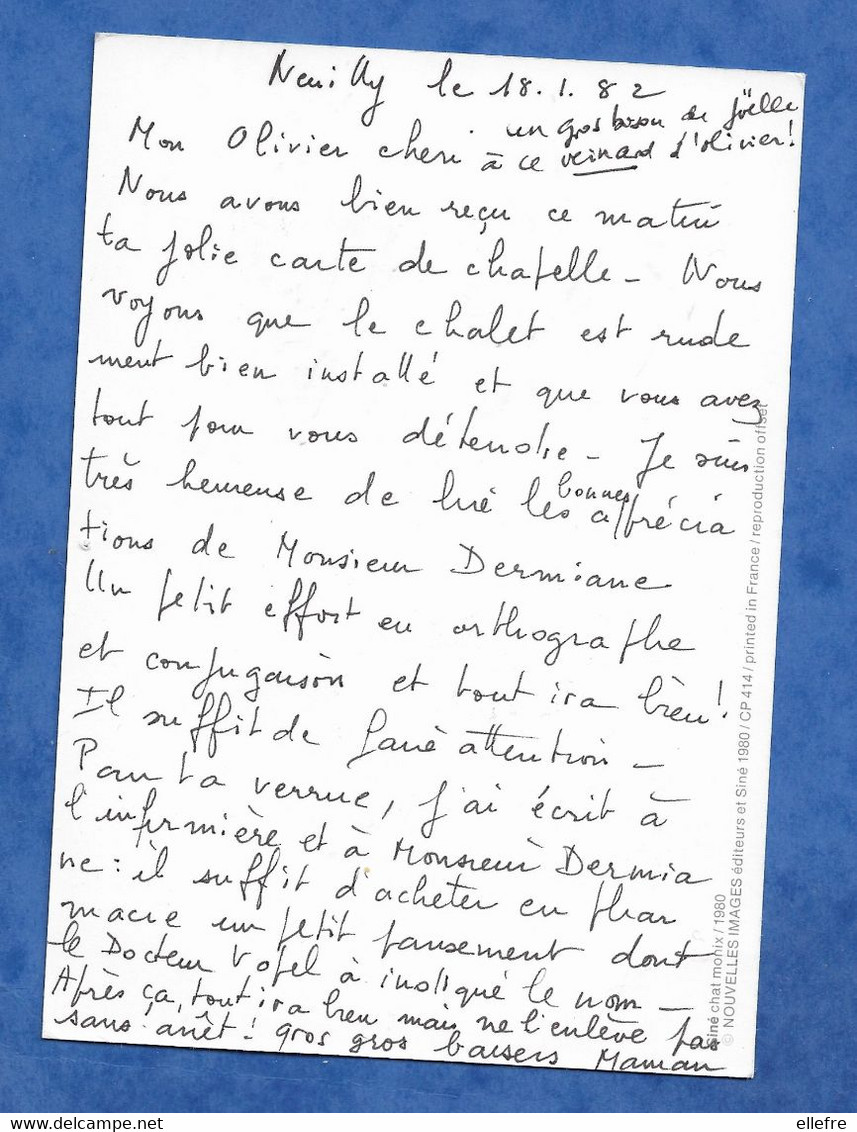 Neuilly le 18.1.82
un gros bisou de Joëlle
à ce veinard d'olivier!
Mon Olivier cheri
Nous avons bien reçu ce matin
ta jolie carte de chapelle - Nous
voyons que le chalet est rude
ment bien installé et que vous avez
tout pour vous détendre - Je suis
très heureuse de lire les bonnes apprécia
tions de Monsieur Dermiane
Un petit effort en orthographe
et conjugaison et tout ira bien!
Il suffit de faire attention -
Pour ta verrue, j'ai écrit à
l'infirmière et à Monsieur Dermia
ne : il suffit d'acheter en phar
macie un petit pansement dont
le Docteur Vogel à indiqué le nom -
Après ça, tout ira bien mais ne l'enlève pas
sans arrêt! gros gros baisers Maman
siné chat monix / 1980
© NOUVELLES IMAGES éditeurs et Siné 1980 / CP 414 / printed in France / reproduction offset
ellefre